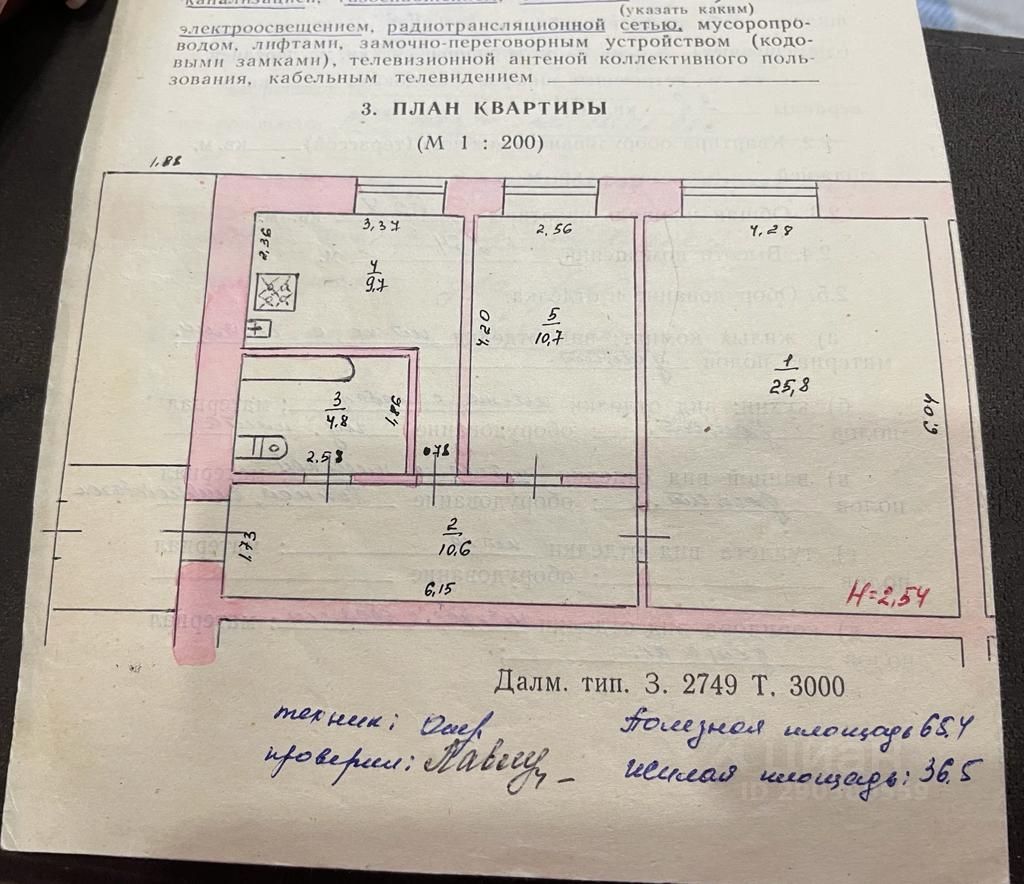 канализацией,
(указать каким)
электроосвещением, радиотрансляционной сетью, мусоропро-
водом, лифтами, замочно-переговорным устройством (кодо-
выми замками), телевизионной антеной коллективного поль-
зования, кабельным телевидением
3. ПЛАН КВАРТИРЫ
(М 1 : 200)
1,88
3,37
2,56
4,28
2,36
4
9,7
4,20
5
10,7
1
25,8
6,04
3
4,8
1,86
2.58
0.78
1,73
2
10.6
6,15
Н=2,54
Далм. тип. З. 2749 Т. 3000
техник:
Полезная площадь 65.4
проверил:
жилая площадь: 36.5